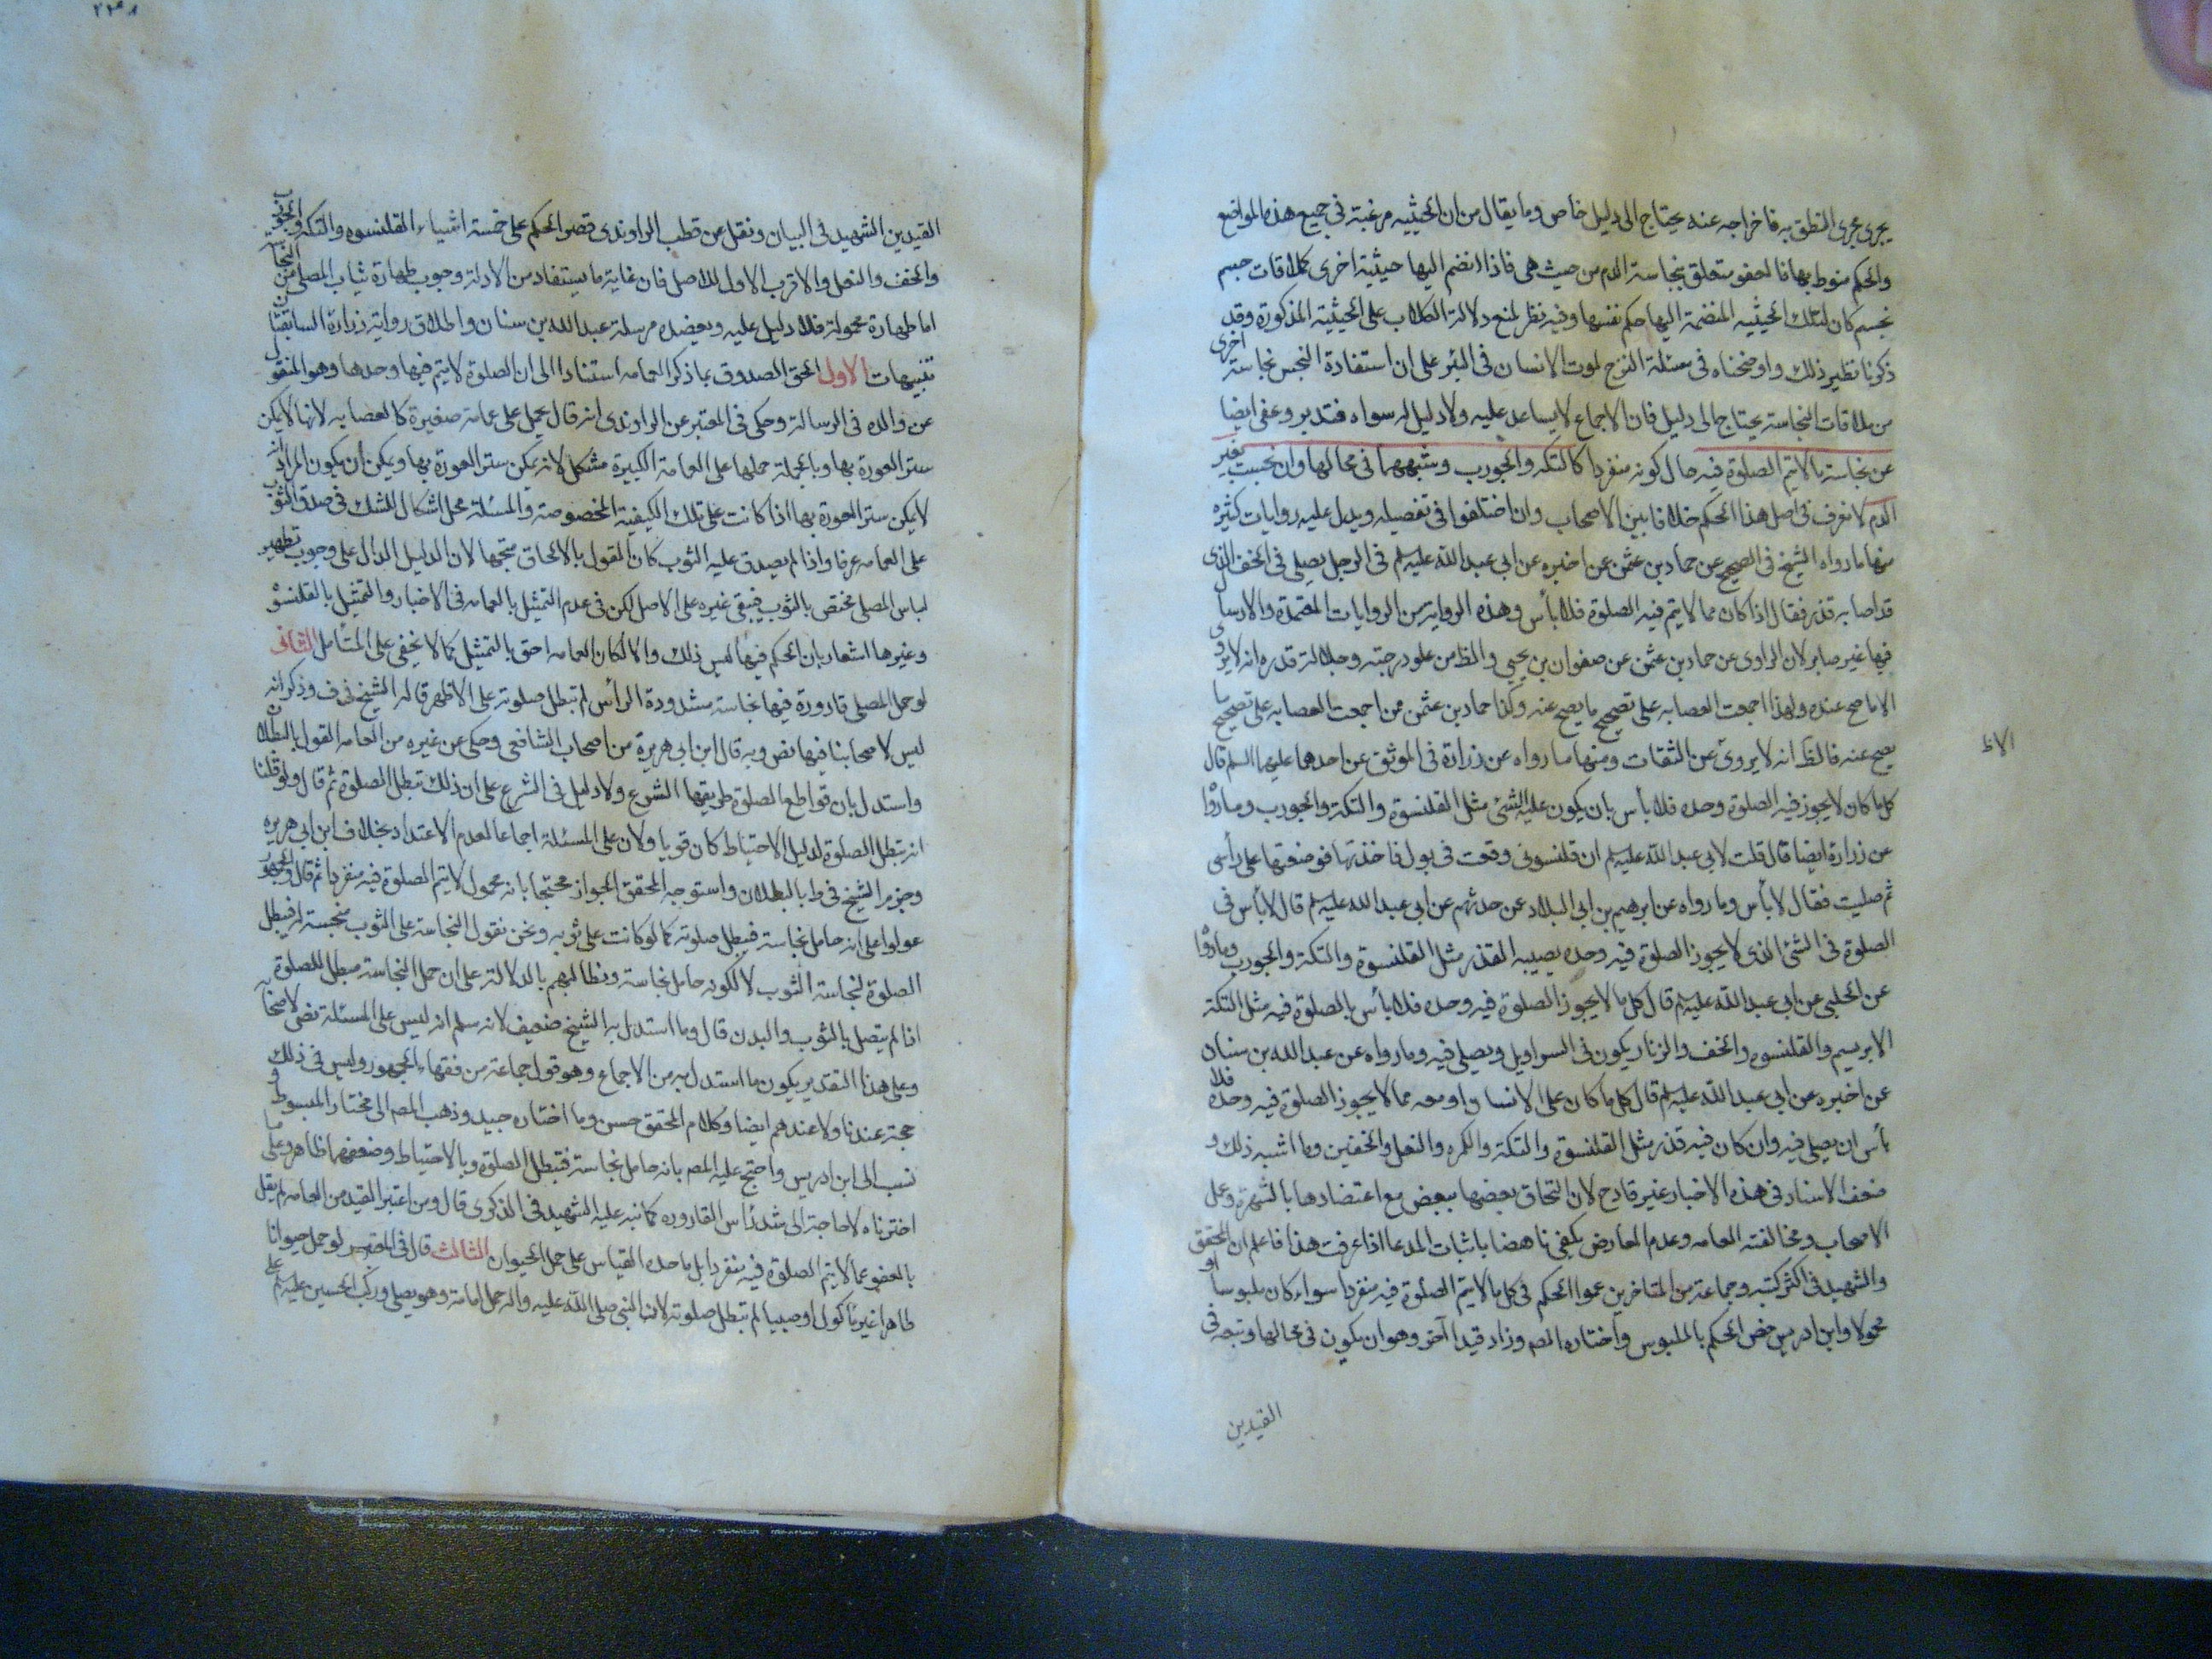 يجرى مجرى النطق به فاخراجه عنه يحتاج الى دليل خاص وما يقال من ان الحيثيه مرعية في جميع هذه المواضع
والحكم منوط بها فالعفو متعلق بنجاسة الدم من حيث هى فاذا انضم اليها حيثية اخرى كملاقات جسم
نجسم كان لتلك الحيثيه المنضمة اليها حكم نفسها وفيه نظر لمنع دلالة الكلاب على الحيثية المذكورة وقد
ذكرنا نظير ذلك واوضحناه فى مسئلة النزح لموت الانسان فى البئر على ان استفادة النجس نجاسة اخرى
من ملاقات النجاسة يحتاج الى دليل فان الاجماع لا يساعد عليه ولا دليل له سواه فتدبر وعفى ايضا
عن نجاسة ما لا يتم الصلوة فيه حال كونه منفردا كالتكه والجورب وشبههما فى محالها وان نجست بغير
الدم لا نعرف فى اصل هذا الحكم خلافا بين الاصحاب وان اختلفوا فى تفصيله ويدل عليه روايات كثيره
منها ما رواه الشيخ فى الصحيح عن حماد بن عثمن عمن اخبره عن ابى عبد الله عليه سلم فى الرجل يصلى فى الخف الذى
قد اصابه قذر فقال اذا كان مما لا يتم فيه الصلوة فلا بأس وهذه الرواية من الروايات المعتمدة والارسال
فيها غير ضاير لان الراوى عن حماد بن عثمن صفوان بن يحيى والظ من علو درجته وجلالة قدره انه لا يروى
الا ما صح عنده ولهذا اجمعت العصابه على تصحيح ما يصح عنه وكذا حماد بن عثمن ممن اجمعت العصابه على تصحيح ما
يصح عنه فالظ انه لا يروى عن الثقات ومنها ما رواه عن زرارة فى الموثق عن احدهما عليهما السلم قال
الا
كل ما كان لا يجوز فيه الصلوة وحده فلا بأس بان يكون عليه الشئ مثل القلنسوة والتكة والجورب وما رواه
عن زرارة ايضا قال قلت لابى عبد الله عليه سلم ان قلنسوتى وقعت فى بول فاخذتها فوضعتها على رأسى
ثم صليت فقال لا بأس وما رواه عن ابرهيم بن ابى البلاد عن حدثهم عن ابى عبد الله عليه سلم قال لا بأس فى
الصلوة فى الشئ الذى لا يجوز الصلوة فيه وحده يصيبه القذر مثل القلنسوة والتكة والجورب وما رواه
عن الحلبى عن ابى عبد الله عليه سلم قال كل ما لا يجوز الصلوة فيه وحده فلا بأس بالصلوة فيه مثل التكة
الابريسم والقلنسوه والخف والزنار يكون فى السراويل ويصلى فيه وما رواه عن عبد الله بن سنان
عن اخبره عن ابى عبد الله عليه سلم قال كل ما كان على الانسان او معه مما لا يجوز الصلوة فيه وحده فلا
بأس ان يصلى فيه وان كان فيه قذر مثل القلنسوة والتكة والكمره والنعل والخفين وما اشبه ذلك و
ضعف الاسناد فى هذه الاخبار غير قادح لان التحاق بعضها ببعض مع اعتضادها بالشهرة وعمل
الاصحاب ومخالفته العامه وعدم المعارض يكفى ناهضا باثبات المدعا اذا عرفت هذا فاعلم ان المحقق
والشهيد فى اكثر كتبه وجماعة من المتاخرين عموا الحكم فى كل ما لا يتم الصلوة فيه منفردا سواء كان ملبوسا او
محمولا وابن ادريس خص الحكم بالملبوس واختاره المص وزاد قيدا آخر وهو ان يكون فى محالها وتبعه فى
القيدين
القيدين الشهيد فى البيان ونقل عن قطب الراوندى قصر الحكم على خمسة اشياء القلنسوه والتكه والجورب
والخف والنعل والاقرب الاول للاصل فان غاية ما يستفاد من الادلة وجوب طهارة ثياب المصلى من النجاسة
اما طهارة محموله فلا دليل عليه ويعضده مرسلة عبد الله بن سنان واطلاق رواية زرارة السابقتان
تنبيهات الاول الحق الصدوق بما ذكر العمامه استنادا الى ان الصلوة لا يتم فيها وحدها وهو المنقول
عن والده فى الرسالة وحكى فى المعتبر عن الراوندى انه قال يحمل على عمامة صغيرة كالعصابه لانها لا يمكن
ستر العورة بها وبالجملة حملها على العمامة الكبيرة مشكل لانه يمكن ستر العورة بها ويمكن ان يكون المراد انه
لا يمكن ستر العورة بها اذا كانت على تلك الكيفية المخصوصة والمسئلة محل اشكال للشك فى صدق الثوب
على العمامه عرفا واذا لم يصدق عليه الثوب كان القول بالالحاق متجها لان الدليل الدال على وجوب تطهير
لباس المصلى مختص بالثوب فيبقى غيره على الاصل لكن فى عدم التمثيل بالعمامه فى الاخبار والتمثيل بالقلنسوه
وغيرها اشعار بان الحكم فيها ليس ذلك والا لكان العمامه احق بالتمثيل كما لا يخفى على المتأمل الثانى
لو حمل المصلى قارورة فيها نجاسة مشدودة الرأس لم تبطل صلوته على الاظهر قاله الشيخ فى ف وذكر انه
ليس لاصحابنا فيها نص وبه قال ابن ابى هريرة من اصحاب الشافعى وحكى عن غيره من العامه القول بالبطلان
واستدل بان قواطع الصلوة طريقها الشرع ولا دليل فى الشرع على ان ذلك تبطل الصلوة ثم قال ولو قلنا
انه تبطل الصلوة لدليل الاحتياط كان قويا ولان على المسئلة اجماعا لعدم الاعتداد بخلاف ابن ابى هريره
وجزم الشيخ فى ط بالبطلان واستوجه المحقق الجواز محتجا بانه محمول لا يتم الصلوة فيه منفردا ثم قال والجمهور
عولوا على انه حامل نجاسة فيبطل صلوته كما لو كانت على ثوبه ونحن نقول النجاسة على الثوب منجسة له فيبطل
الصلوة لنجاسة الثوب لا لكونه حامل نجاسة ونطالبهم بالدلالة على ان حمل النجاسة مبطل للصلوة
اذا لم يتصل بالثوب والبدن قال وما استدل به الشيخ ضعيف لانه سلم انه ليس على المسئلة نص لاصحابنا
وعلى هذا التقدير يكون ما استدل به من الاجماع وهو قول جماعة من فقهاء الجمهور وليس فى ذلك
حجة عندنا ولا عندهم ايضا وكلام المحقق حسن وما اختاره جيد وذهب المص الى مختار المبسوط و
نسب الى ابن ادريس واحتج عليه المص بانه حامل نجاسة فتبطل الصلوة وبالاحتياط وضعفهما ظاهر وعلى ما
اخترناه لا حاجة الى شد رأس القاروره كما نبه عليه الشهيد فى الذكرى قال ومن اعتبر القيد من العامه لم يقل
بالعفو عما لا يتم الصلوة فيه منفردا بل ماحده القياس على حمل الحيوان الثالث قال فى المعتبر لو حمل حيوانا
طاهرا غير مأكول او صبيا لم تبطل صلوته لان النبى صلى الله عليه واله حمل امامة وهو يصلى وركب الحسين عليه سلم على